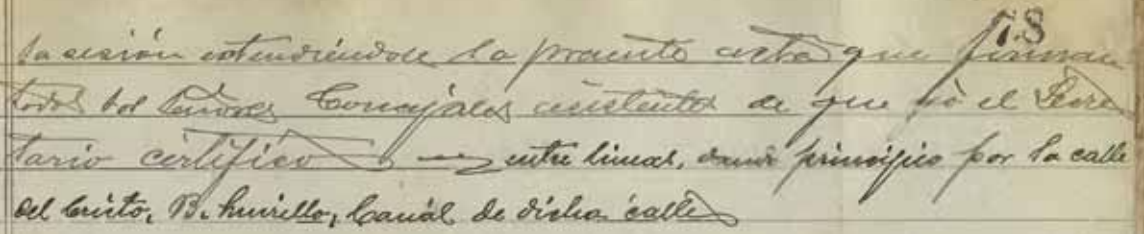 78
la sesión extendiéndose la presente acta que firman
todos los Señores Concejales asistentes de que yo el Secre
tario certifico entre lineas, dando principio por la calle
del Cristo, B. Murillo, Canal de dicha calle